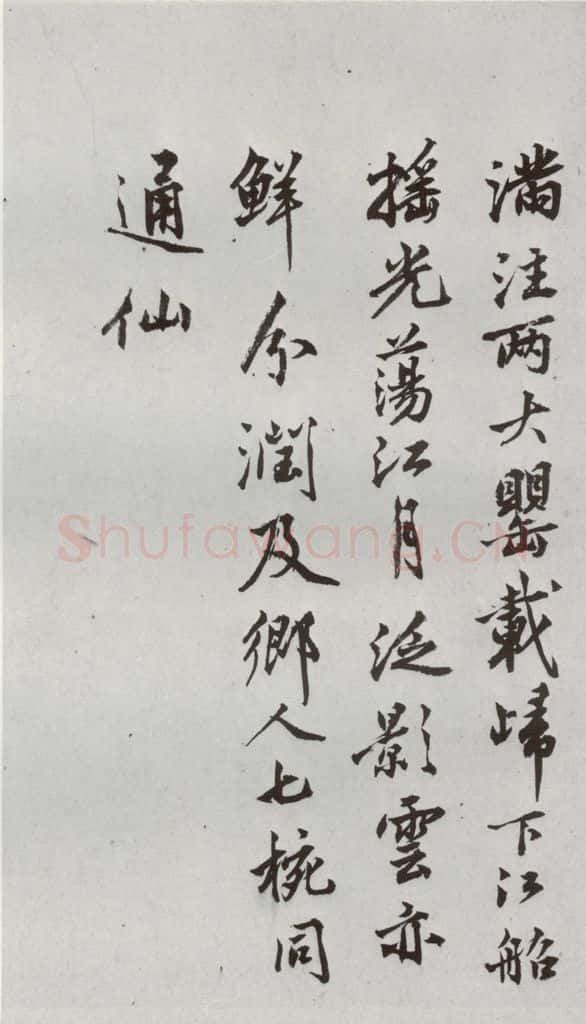 滿注两大罌載歸下江船
搖光蕩江月泛影雲亦
鮮分潤及鄉人七椀同
通仙
Shufawang.CN